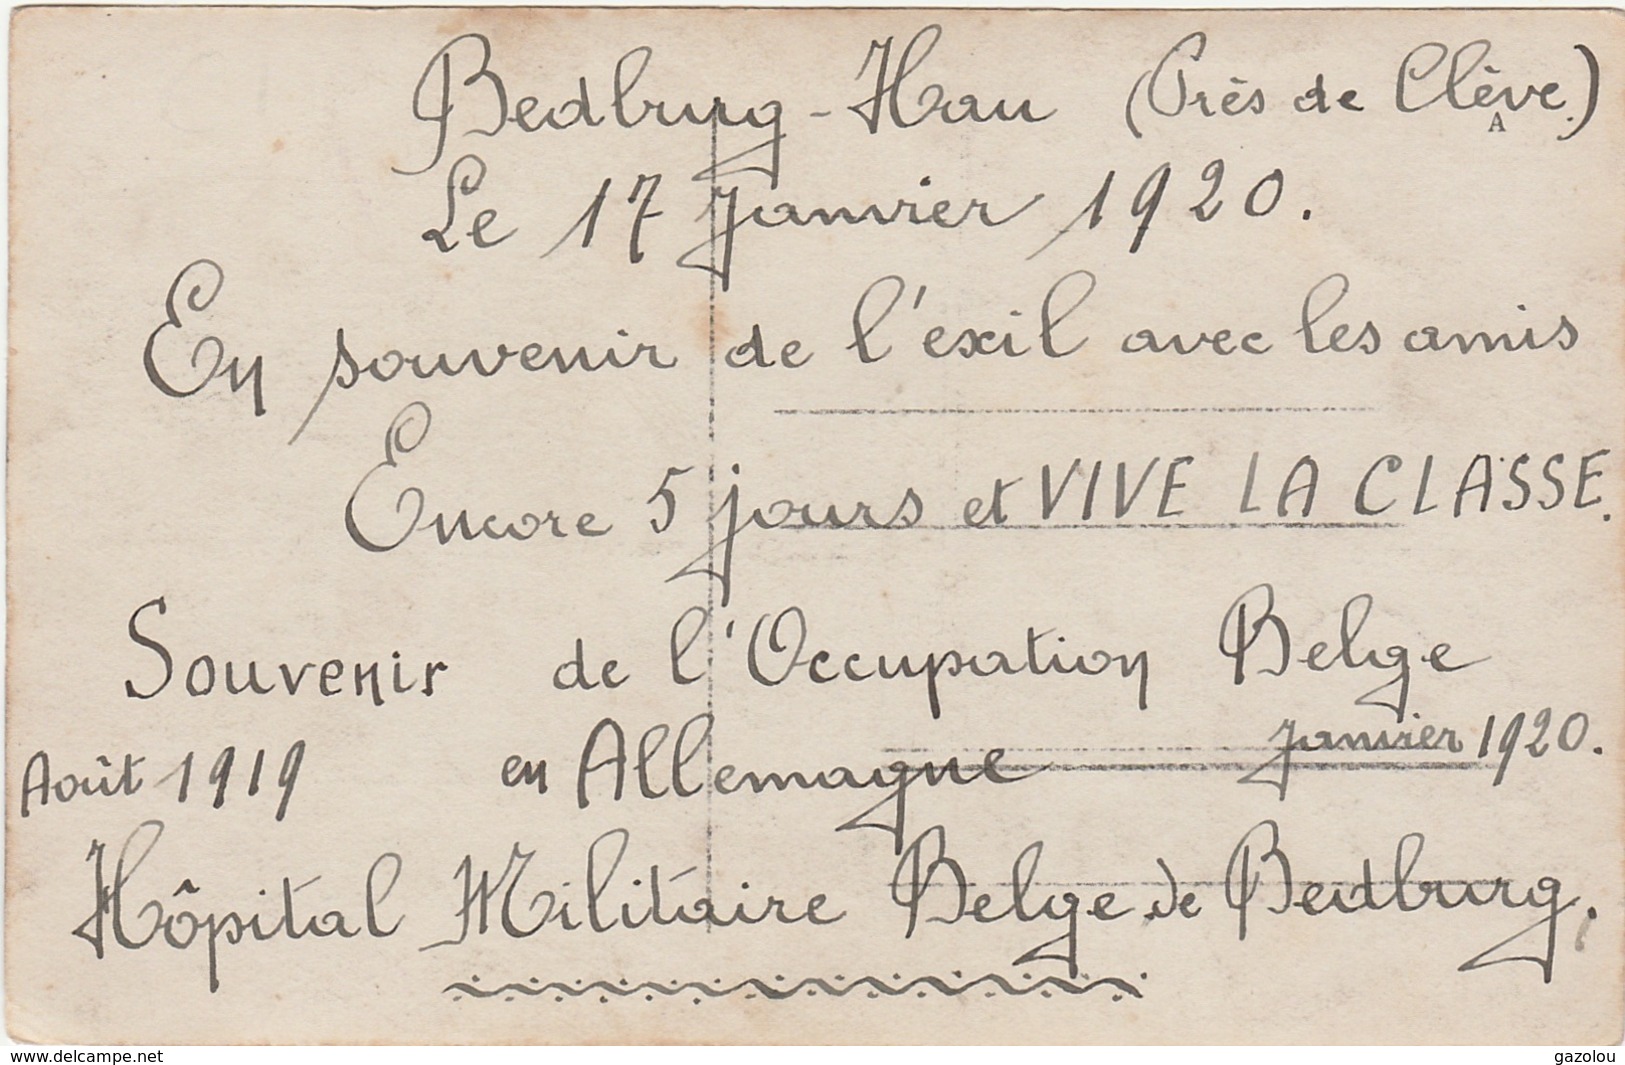 Bedburg-Hau (Près de Clève.)
A
Le 17 Janvier 1920.
En souvenir de l'exil avec les amis
Encore 5 jours et VIVE LA CLASSE.
Souvenir de l'Occupation Belge
Août 1919 en Allemagne Janvier 1920.
Hôpital Militaire Belge de Bedburg.
www.delcampe.net
gazolou